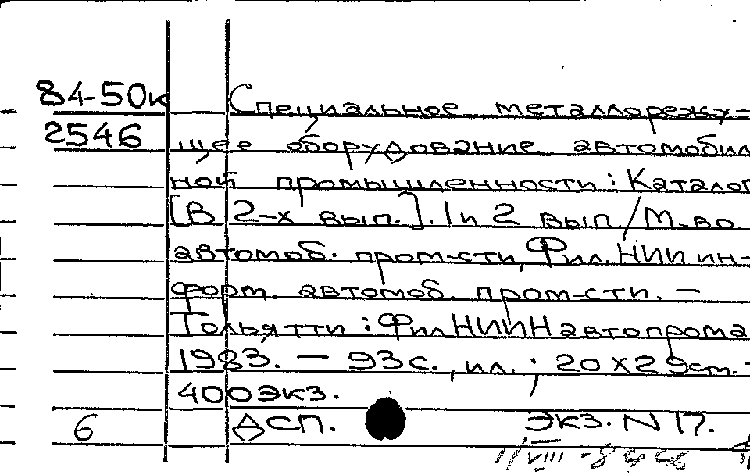 84-50к Специальное металлорежу-
2546 щее оборудование автомобил
ной промышленности: Каталог
[В 2-х вып.]. 1 и 2 вып/М-во
автомоб. пром-сти, Фил. НИИ ин-
форм. автомоб. пром-сти. –
Тольятти: ФилНИИНавтопрома
1983. – 93 с., ил.; 20х29см.-
400 экз.
6 ДСП. Экз. N 17.